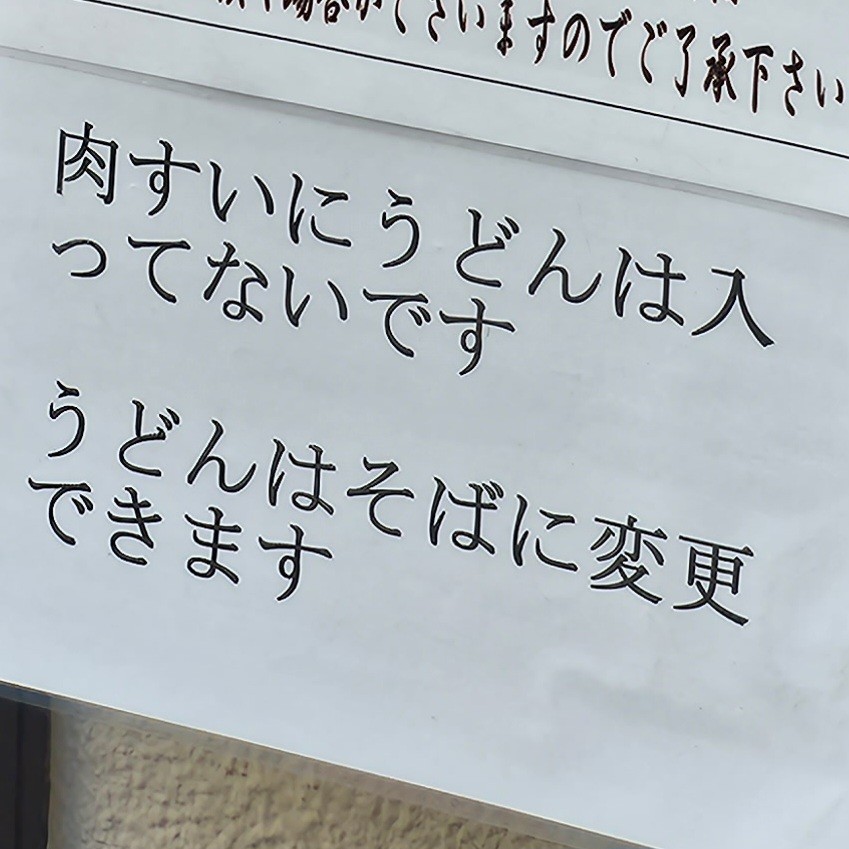 場合がございますのでご了承下さい
肉すいにうどんは入
ってないです
うどんはそばに変更
できます